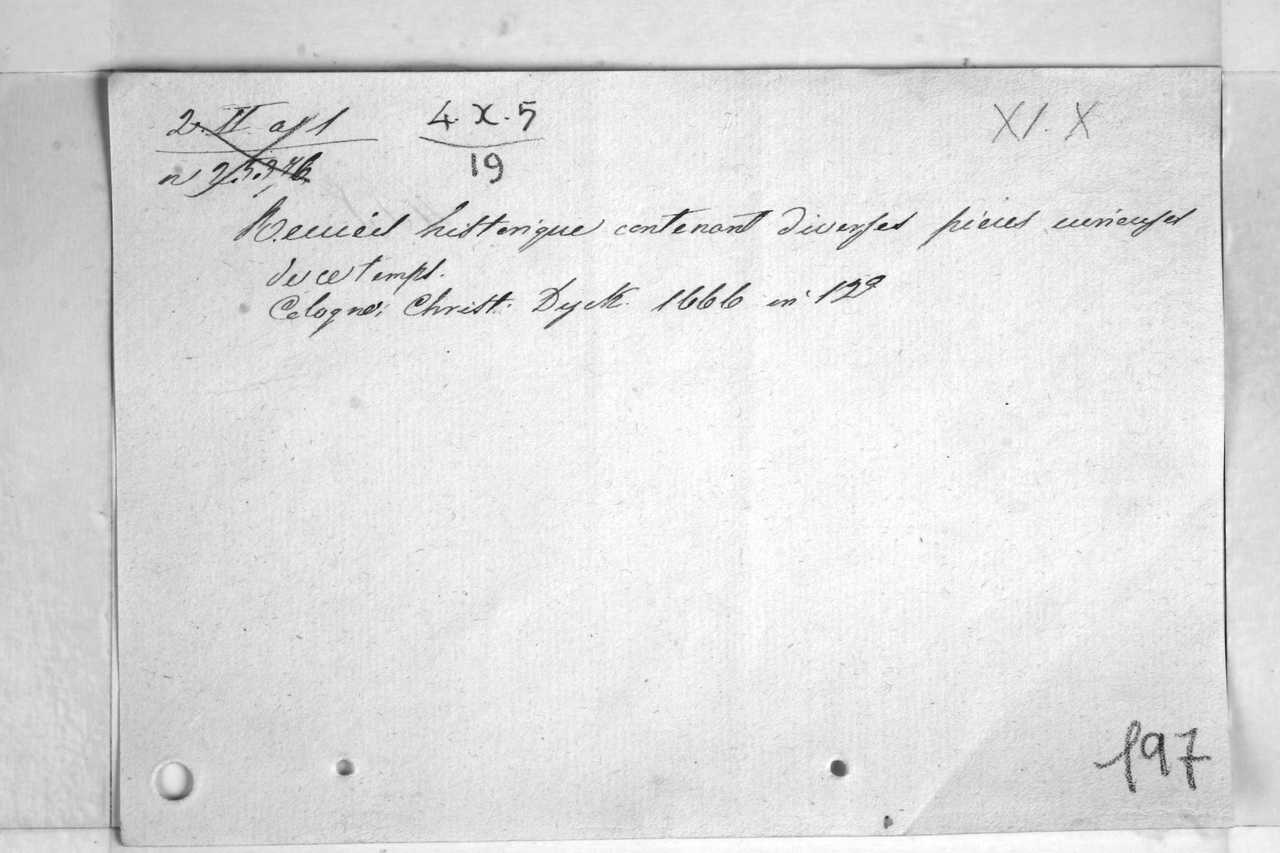 4. X. 5
19
XI. X
Recueil historique contenant diverses pieces curieuses
de ce temps.
Cologne, Christ. Dyck. 1666 in 12º
197